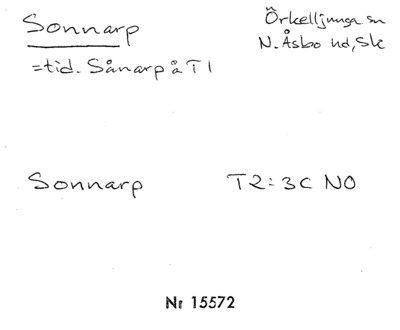 Sonnarp
Örkelljunga sn
N. Åsbo hd, Sk
=tid. Sånarp å T1
Sonnarp T2: 3c NO
Nr 15572